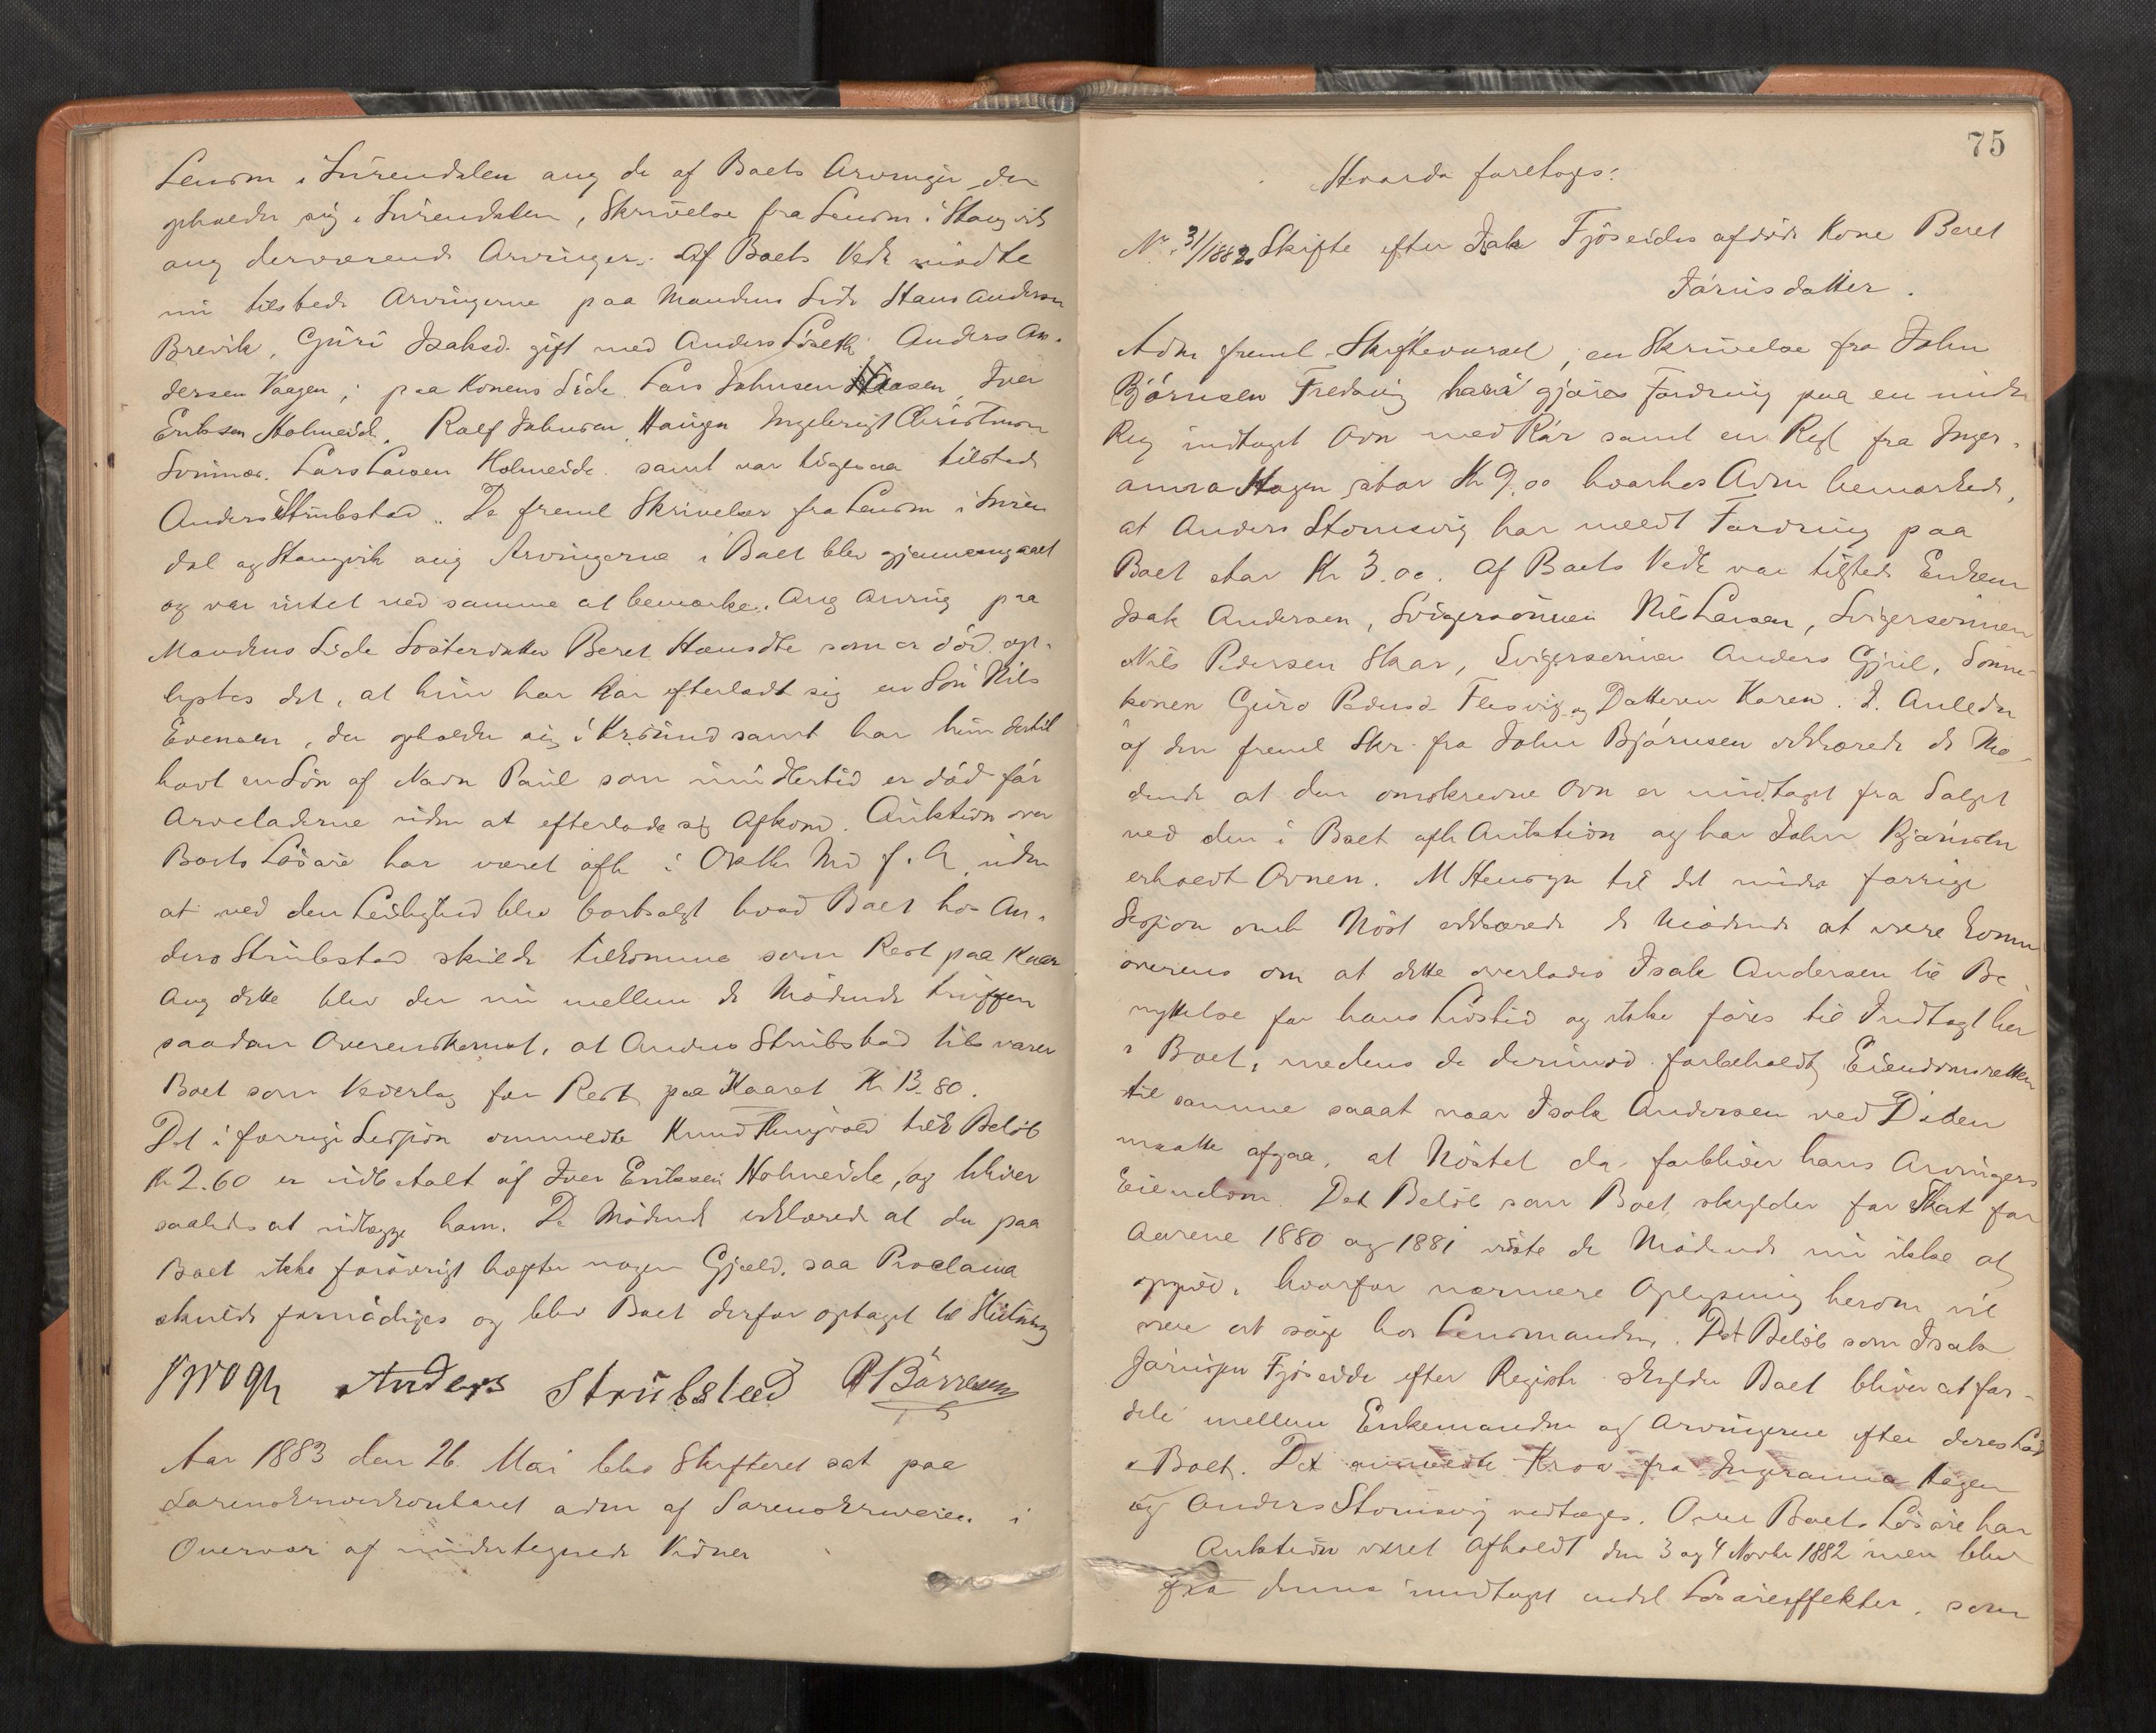 Lensm i Surendalen ang de af Boets Arvinger der
opholder sig i Surendalen, Skrivelse fra Lensm. i Stangvik
ang derværende Arvinger. Af Boets Vedk mødte
nu tilstede Arvingerne paa Mandens Side Hans Andersen
Brevik, Guri Isaksd. gift med Anders Anders An-
dersen Vaagen; paa Konens Side Lars Johnsen Iver
Eriksen Holmeide, Rolf Johnsen Haugen Ingebrigt Christensen
Lars Larsen Holmeide samt var ligesaa tilstede
Anders Strubstad. De freml Skrivelser fra Lensm i Suren
dal og Stangvik ang Arvingerne i Boet blev gjennemgaaet
og var intet ved samme at bemærke. Ang Arving paa
Mandens Side Søsterdatter Beret Hansdtr som er død op-
lystes det, at hun har efterladt sig en Søn Nils
Evensen, der opholder sig i Krsund samt har hun dertil
havt en Søn af Navn Paul som imidlertid er død før
Arveladerne uden at efterlade sig Afkom. Auktion over
Boets Løsøre har været afh i Oktbr Md f. A. uden
at ved den Leilighed blev bortsolgt hvad Boet hos An-
ders Strubstad skulde tilkomme som Rest paa Kaar
Ang dette blev der nu mellem de Mødende truffen
saadan Overenskomst, at Anders Strubstad tilsvarer
Boet som Vederlag for Rest paa Kaaret Kr 13.80.
Det i forrige Session ommeldte Knud tilk Beløb
Kr 2.60 er udbetalt af Iver Eriksen Holmeide, og bliver
saaledes at udlægge ham. De Mødende erklærede at der paa
Boet ikke forøvrigt hefter nogen Gjæld, saa Proclama
skulde fornødiges og blev Boet derfor optaget til Slutning
Anders Strubstad Børresen
Aar 1883 den 26. Mai blev Skifteret sat paa
Sorenskriverkontoret adm af Sorenskriveren i
Overvær af undertegnede Vidner
75
Hvorda foretoges:
No. 31/1882. Skifte efter Isak Fjøseides afdøde Kone Beret
Jørnsdatter.
Adm freml Skiftevarsel, en Skrivelse fra John
Bjørnsen Fredsvig hvori gjøres Fordring paa en under
Reg indtaget Ovn med Rør samt en Regl fra Inger-
anna Hagen stor Kr 9.00 hvorhos Adm bemærkede,
at Anders Stomsvig har meldt Fordring paa
Boet stor Kr 3.00. Af Boets Vedk var tilstede Enkem
Isak Andersen, Svigersønnen Nils Larsen, Svigersønnen
Nils Pedersen Skar, Svigersønnen Anders Gjul, Sønne-
konen Guro Pedersd Flesvig og Datteren Karen. I Anledn
af den freml Skr. fra John Bjørnsen erklærede de Mø-
dende at den omskrevne Ovn er undtaget fra Salget
ved den i Boet afh Auktion og har John Bjørnsen
erholdt Ovnen. M Hensyn til det under forrige
Session omh Nøst erklærede de Mødende at være komne
overens om at dette overlades Isak Andersen til Be-
nyttelse for hans Livstid og ikke føres til Indtægt her
i Boet, medens de derimod forbeholdt Eiendomsretten
til samme saaat naar Isak Andersen ved Døden
maatte afgaa, at Nøstet da forbliver hans Arvingers
Eiendom. Det Beløb som Boet skylder for Skat for
Aarene 1880 og 1881 viste de Mødende nu ikke at
opgive, hvorfor nærmere Oplysning herom vil
være at søge hos Lensmanden. Det Beløb som Isak
Fjøseide efter Registr skylder Boet bliver at for-
dele mellem Enkemanden og Arvingerne efter deres Lod
i Boet. Det anmeldte Krav fra Ingeranna Hagen
og Anders Stomsvig vedtages. Over Boets Løsøre har
Auktion været afholdt den 3 og 4 Novbr 1882 men blev
fra denne undtaget endel Løsøreeffekter, som